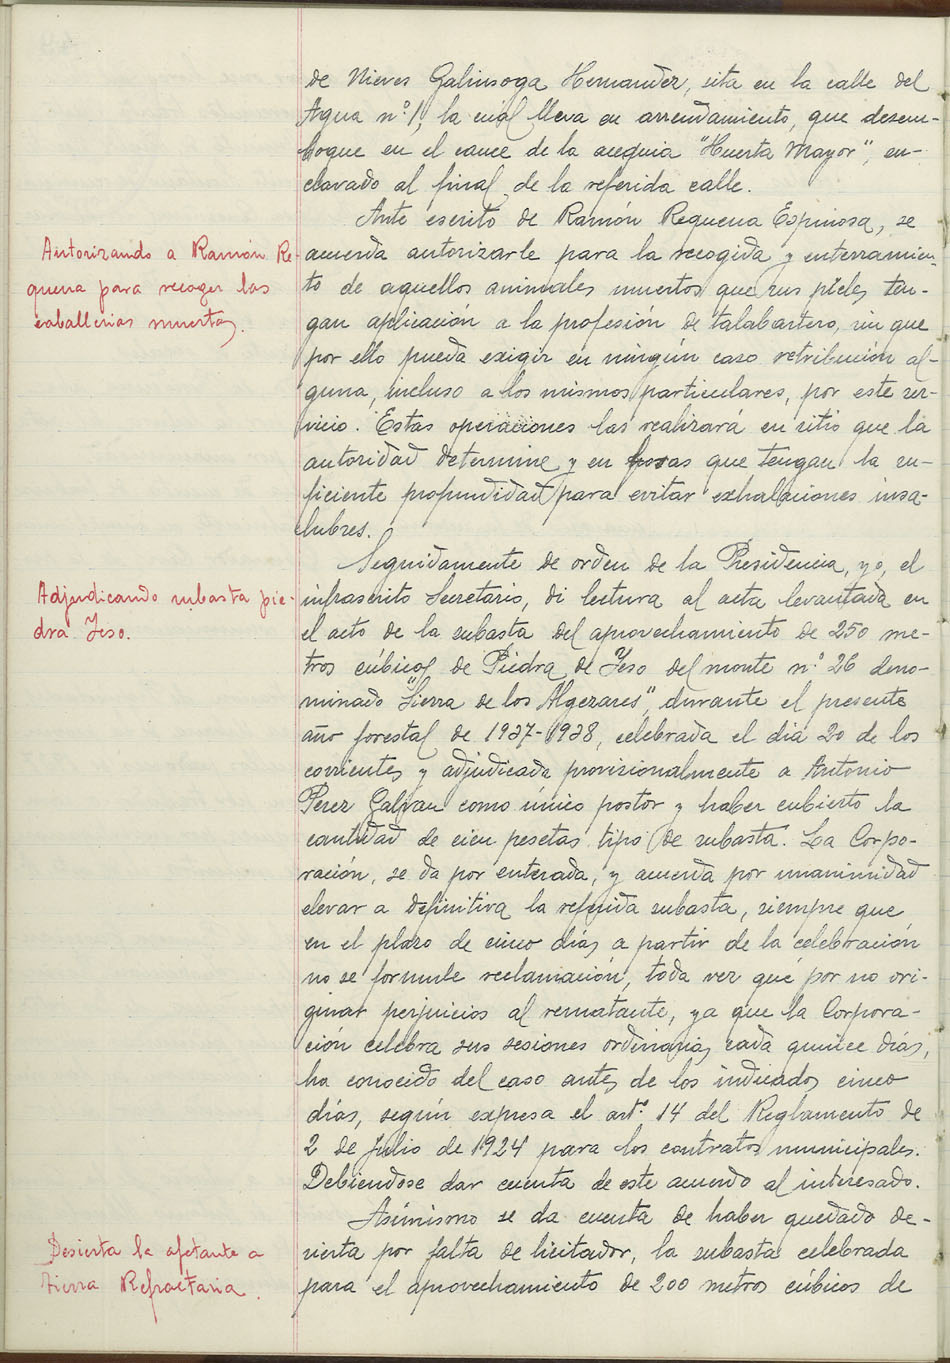 de Nieves Galinsoga Hernandez, sita en la calle del
Agua n.º 1, la cual lleva en arrendamiento, que desem-
boque en el cauce de la acequia "Huerta Mayor", en-
clavado al final de la referida calle.
Ante escrito de Ramón Requena Espinosa, se
Autorizando a Ramón Re-
quena para recoger las
caballerias muertas.
acuerda autorizarle para la recogida y enterramien-
to de aquellos animales muertos que sus pieles ten-
gan aplicación a la profesión de talabartero, sin que
por ello pueda exigir en ningún caso retribución al-
guna, incluso a los mismos particulares, por este ser-
vicio. Estas operaciones las realizará en sitio que la
autoridad determine y en fosas que tengan la su-
ficiente profundidad para evitar exhalaciones insa-
lubres.
Seguidamente de orden de la Presidencia, yo, el
Adjudicando subasta pie-
dra Yeso.
infrascrito Secretario, di lectura al acta levantada en
el acto de la subasta del aprovechamiento de 250 me-
tros cúbicos de Piedra de Yeso del monte n.º 26 deno-
minado "Sierra de los Algezares", durante el presente
año forestal de 1937-1938, celebrada el dia 20 de los
corrientes y adjudicada provisionalmente a Antonio
Perez Galvan como único postor y haber cubierto la
cantidad de cien pesetas tipo de subasta. La Corpo-
ración, se da por enterada, y acuerda por unanimidad
elevar a definitiva la referida subasta, siempre que
en el plazo de cinco días a partir de la celebración
no se formule reclamación, toda vez que por no ori-
ginar perjuicios al rematante, ya que la Corpora-
ción celebra sus sesiones ordinarias cada quince días,
ha conocido del caso antes de los indicados cinco
días, según expresa el artº. 14 del Reglamento de
2 de Julio de 1924 para los contratos municipales.
Debiendose dar cuenta de este acuerdo al interesado.
Asimismo se da cuenta de haber quedado de-
Desierta la afetante a
tierra Refractaria.
sierta por falta de licitador, la subasta celebrada
para el aprovechamiento de 200 metros cúbicos de